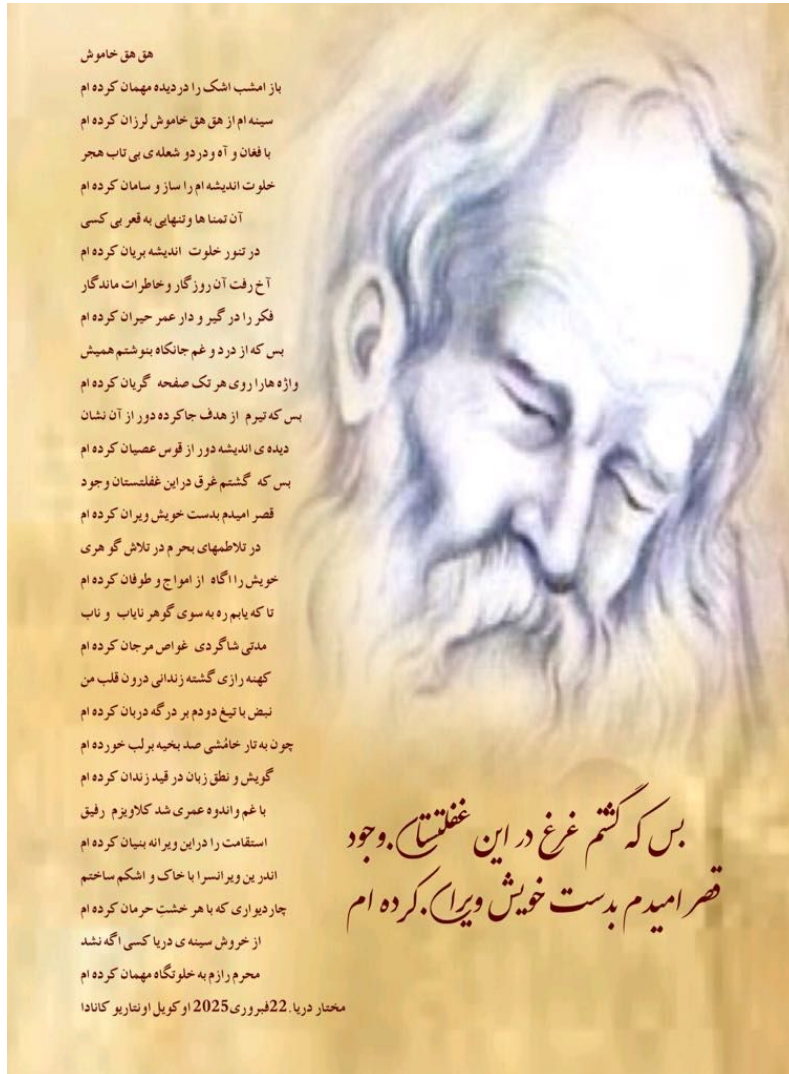 هق هق خاموش
باز امشب اشک را دردیده مهمان کرده ام
سینه ام از هق هق خاموش لرزان کرده ام
با فغان و آه ودردو شعله ی بی تاب هجر
خلوت اندیشه ام را ساز و سامان کرده ام
آن تمنا ها وتنهایی به قعر بی کسی
در تنور خلوت اندیشه بریان کرده ام
آخ رفت آن روزگار وخاطرات ماندگار
فکر را در گیر و دار عمر حیران کرده ام
بس که از درد و غم جانکاه بنوشتم همیش
واژه هارا روی هر تک صفحه گریان کرده ام
بس که تیرم از هدف جاکرده دور از آن نشان
دیده ی اندیشه دور از قوس عصیان کرده ام
بس که گشتم غرق دراین غفلتستان وجود
قصر امیدم بدست خویش ویران کرده ام
در تلاطمهای بحر م در تلاش گو هری
خویش را اگاه از امواج و طوفان کرده ام
تا که یابم ره به سوی گوهر نایاب و ناب
مدتی شاگردی غواص مرجان کرده ام
کهنه رازی گشته زندانی درون قلب من
نبض با تیغ دودم بر درگه دربان کرده ام
چون به تار خامُشی صد بخیه برلب خورده ام
گویش و نطق زبان در قید زندان کرده ام
با غم واندوه عمری شد کلاویزم رفیق
استقامت را دراین ویرانه بنیان کرده ام
اندرین ویرانسرا با خاک و اشکم ساختم
چاردیواری که با هر خشتِ حرمان کرده ام
از خروش سینه ی دریا کسی اگه نشد
محرم رازم به خلوتگاه مهمان کرده ام
مختار دریا.22فبروری2025 اوکویل اونتاریو کانادا
بس که گشتم غرغ در این غفلتستان.وجود
قصر امیدم بدست خویش ویران.کرده ام